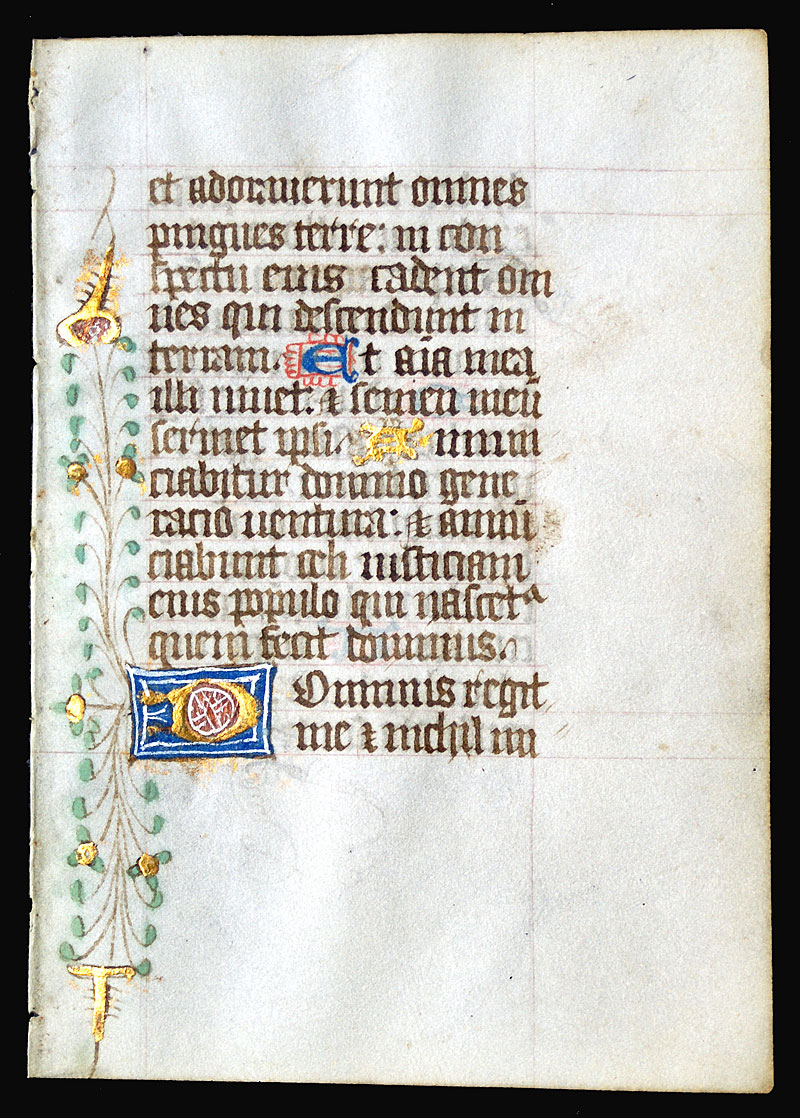 et adorauerunt omnes
pingues terre: in con
spectu eius cadent om
nes qui descendunt in
terram. Et aīa mea
illi uiuet: & semen meū
seruiet ipsi. Annun
ciabitur domino gene
racio uentura: & annū
ciabunt celi iusticiam
eius populo qui nascetᷣ
quem fecit dominus.
Dominus regit
me ⁊ nichil mi